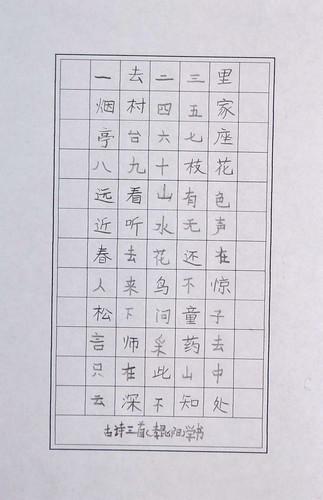 一去二三里
烟村四五家
亭台六七座
八九十枝花
远看山有色
近听水无声
春去花还在
人来鸟不惊
松下问童子
言师采药去
只在此山中
云深不知处
古诗三首
学书